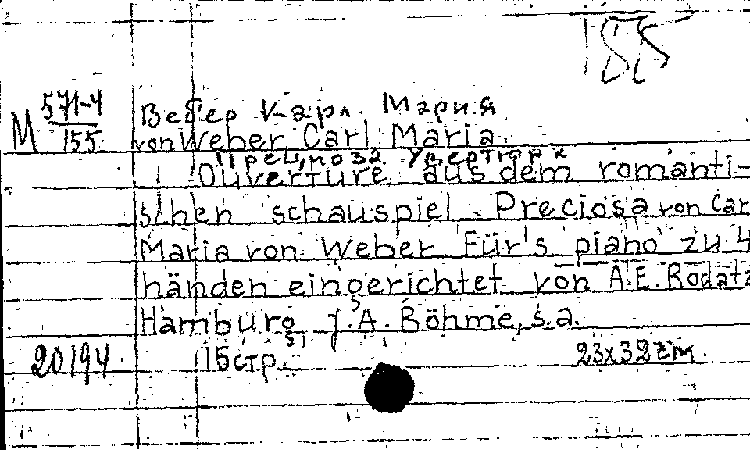 185
571-4
М 155
Вебер Карл Мария
von Weber Carl Maria
Прециоза Увертюра к
Ouverture aus dem romanti-
schen schauspiel. Preciosa von Car
Maria von Weber Für's piano zu 4
händen eingerichtet von A.E. Rodatz
Hamburg, J.A. Böhme, s.a.
20194 15 стр. 23x32 zm.